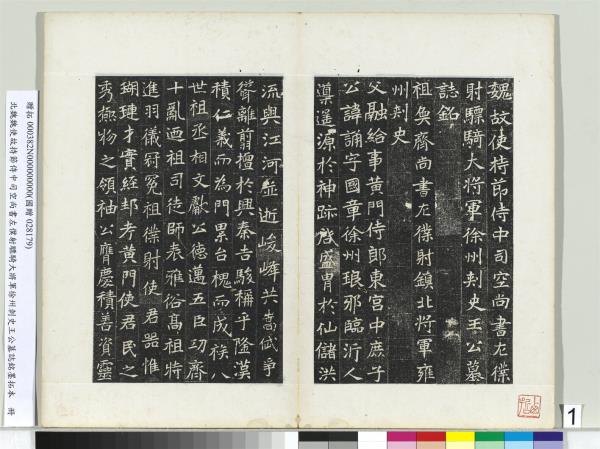 魏故使持節侍中司空尚書左僕
射驃騎大將軍徐州刾史王公墓
誌銘
祖奐齊尚書左僕射鎮北將軍雍
州刾史
父融給事黃門侍郎東宮中庶子
公諱誦字國章徐州琅邪臨沂人
遥源於神跡啓盛胄於仙儲洪
流與江河並逝峻峰共嵩岱爭
聳離翦擅於興秦吉駿稱乎隆漢
積仁義而為門累台槐而成族八
世祖丞相文獻公德邁五臣功齊
十亂迺祖司徒師表雅俗髙祖特
進羽儀冠冕祖僕射使君器惟
瑚璉才實經邦考黃門使君民之
秀物之領袖公膺慶積善資靈
贈拓 000382N000000000(國贈 028179)
北魏魏使故持節侍中司空尚書左僕射驃騎大將軍徐州刺史王公墓誌銘墨拓本 冊
1